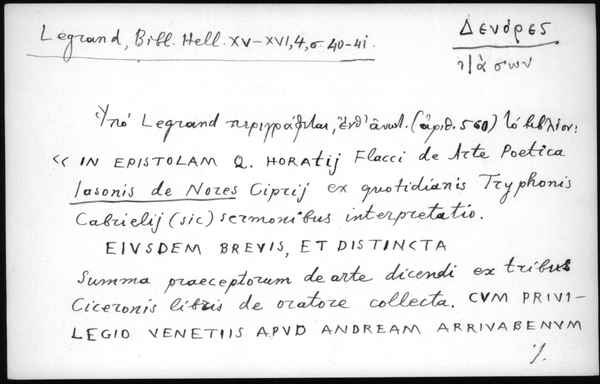 Legrand, Bibl. Hell. XV-XVI, 4, σ. 40-41.
Δενόρες
Ἰάσων
Ὑπό Legrand περιγράφεται, ἔνθ' ἀνωτ. (ἀριθ. 560) τό βιβλίον:
« IN EPISTOLAM Q. HORATIJ Flacci de Arte Poetica
Iasonis de Nores Ciprij ex quotidianis Tryphonis
Cabrielij (sic) sermonibus interpretatio.
EIVSDEM BREVIS, ET DISTINCTA
Summa praeceptorum de arte dicendi ex tribus
Ciceronis libris de oratore collecta. CVM PRIVI-
LEGIO VENETIIS APVD ANDREAM ARRIVABENVM